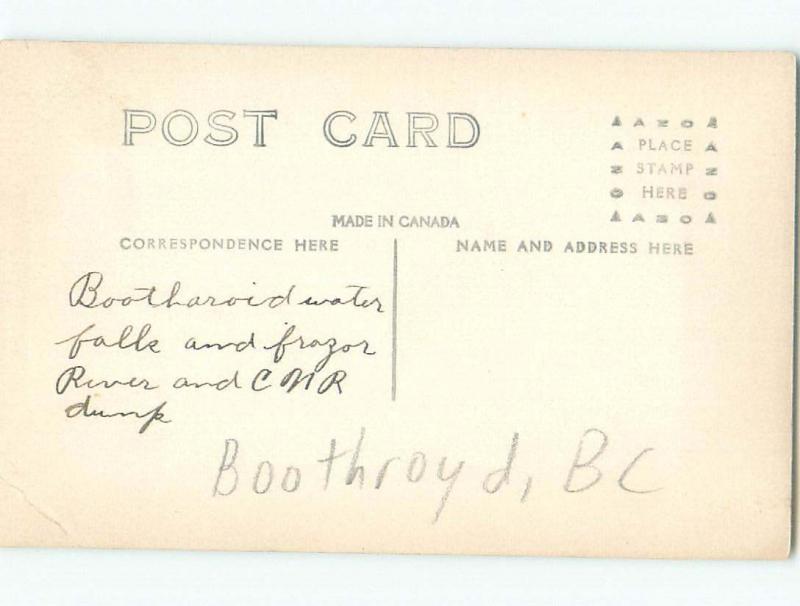 POST CARD
AZOA
PLACE
STAMP
HERE
AZOA
MADE IN CANADA
CORRESPONDENCE HERE
NAME AND ADDRESS HERE
Bootharoid water
falls and frazor
River and CNR
dump
Boothroyd, BC